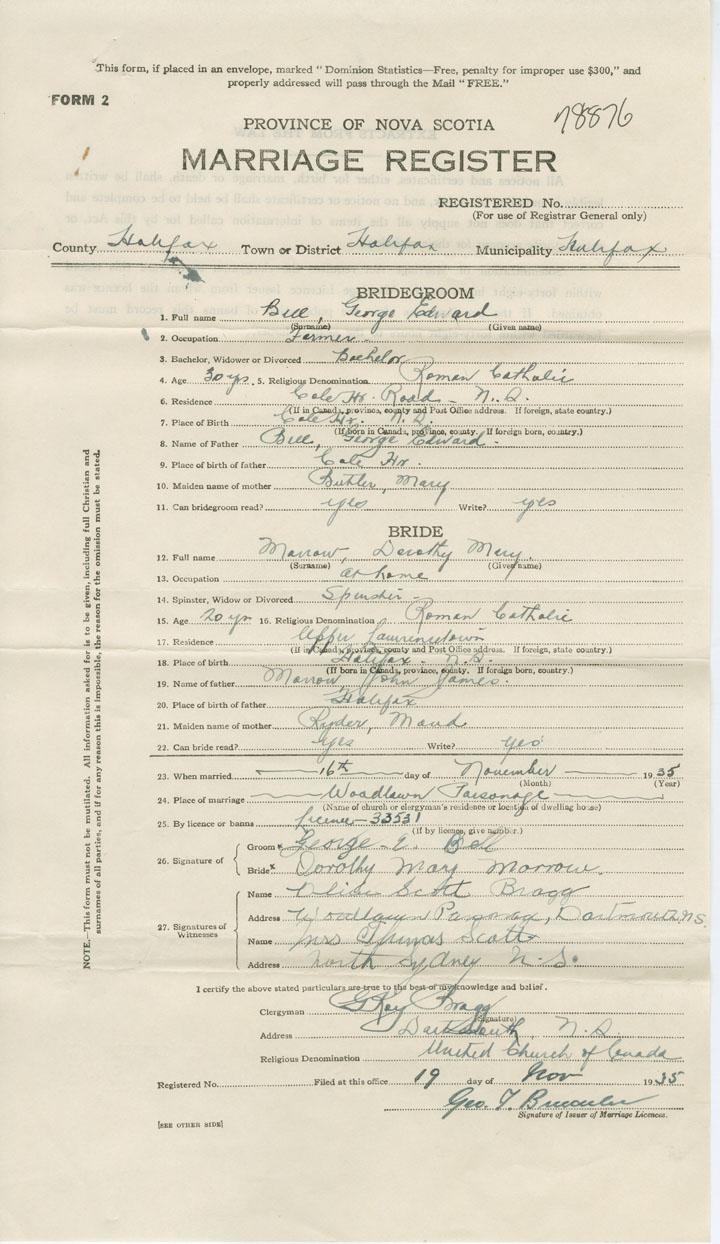 This form, if placed in an envelope, marked "Dominion Statistics—Free, penalty for improper use $300," and
properly addressed will pass through the Mail "FREE."
FORM 2
78876
PROVINCE OF NOVA SCOTIA
MARRIAGE REGISTER
REGISTERED No.
(For use of Registrar General only)
County Halifax Town or District Halifax Municipality Halifax
BRIDEGROOM
1. Full name Bell, George Edward
(Surname) (Given name)
2. Occupation Farmer
3. Bachelor, Widower or Divorced Bachelor
4. Age 30 yrs. 5. Religious Denomination Roman Catholic
6. Residence Cole Hr. Road - N.S.
(If in Canada, province, county and Post Office address. If foreign, state country.)
7. Place of Birth Cole Hr. N.S.
(If born in Canada, province, county. If foreign born, country.)
8. Name of Father Bell, George Edward.
9. Place of birth of father Cole Hr.
10. Maiden name of mother Butler, Mary
11. Can bridegroom read? yes Write? yes
BRIDE
12. Full name Morrow, Dorothy Mary.
(Surname) (Given name)
13. Occupation at home
14. Spinster, Widow or Divorced Spinster
15. Age 20 yrs 16. Religious Denomination Roman Catholic
17. Residence Upper Lawrencetown
(If in Canada, province, county and Post Office address. If foreign, state country.)
18. Place of birth Halifax - N.S.
(If born in Canada, province, county. If foreign born, country.)
19. Name of father Morrow, John James.
20. Place of birth of father Halifax
21. Maiden name of mother Ryder, Maud
22. Can bride read? yes Write? yes
23. When married 16th day of November 1935
(Month) (Year)
24. Place of marriage Woodlawn Parsonage
(Name of church or clergyman's residence or location of dwelling house)
25. By licence or banns License - 33531
(If by licence, give number.)
26. Signature of
Groom x George - E. Bell
Bride x Dorothy Mary Morrow.
27. Signatures of Witnesses
Name Scott Bragg
Address Woodlawn Parsonage, Dartmouth N.S.
Name Mrs Scott
Address North Sydney N.S.
I certify the above stated particulars are true to the best of my knowledge and belief.
Clergyman G Ray Bragg
(Signature)
Address Dartmouth, N.S.
Religious Denomination United Church of Canada
Registered No. Filed at this office 19 day of Nov 1935
Geo. T.
Signature of Issuer of Marriage Licences.
[SEE OTHER SIDE]
NOTE.—This form must not be mutilated. All information asked for is to be given, including full Christian and
surnames of all parties, and if for any reason this is impossible, the reason for the omission must be stated.